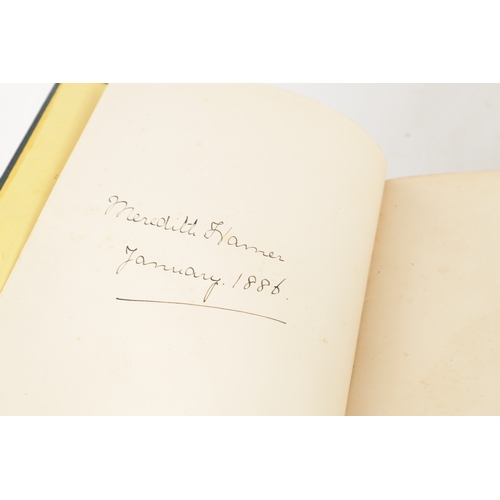 Meredith Hamer
January. 1886.